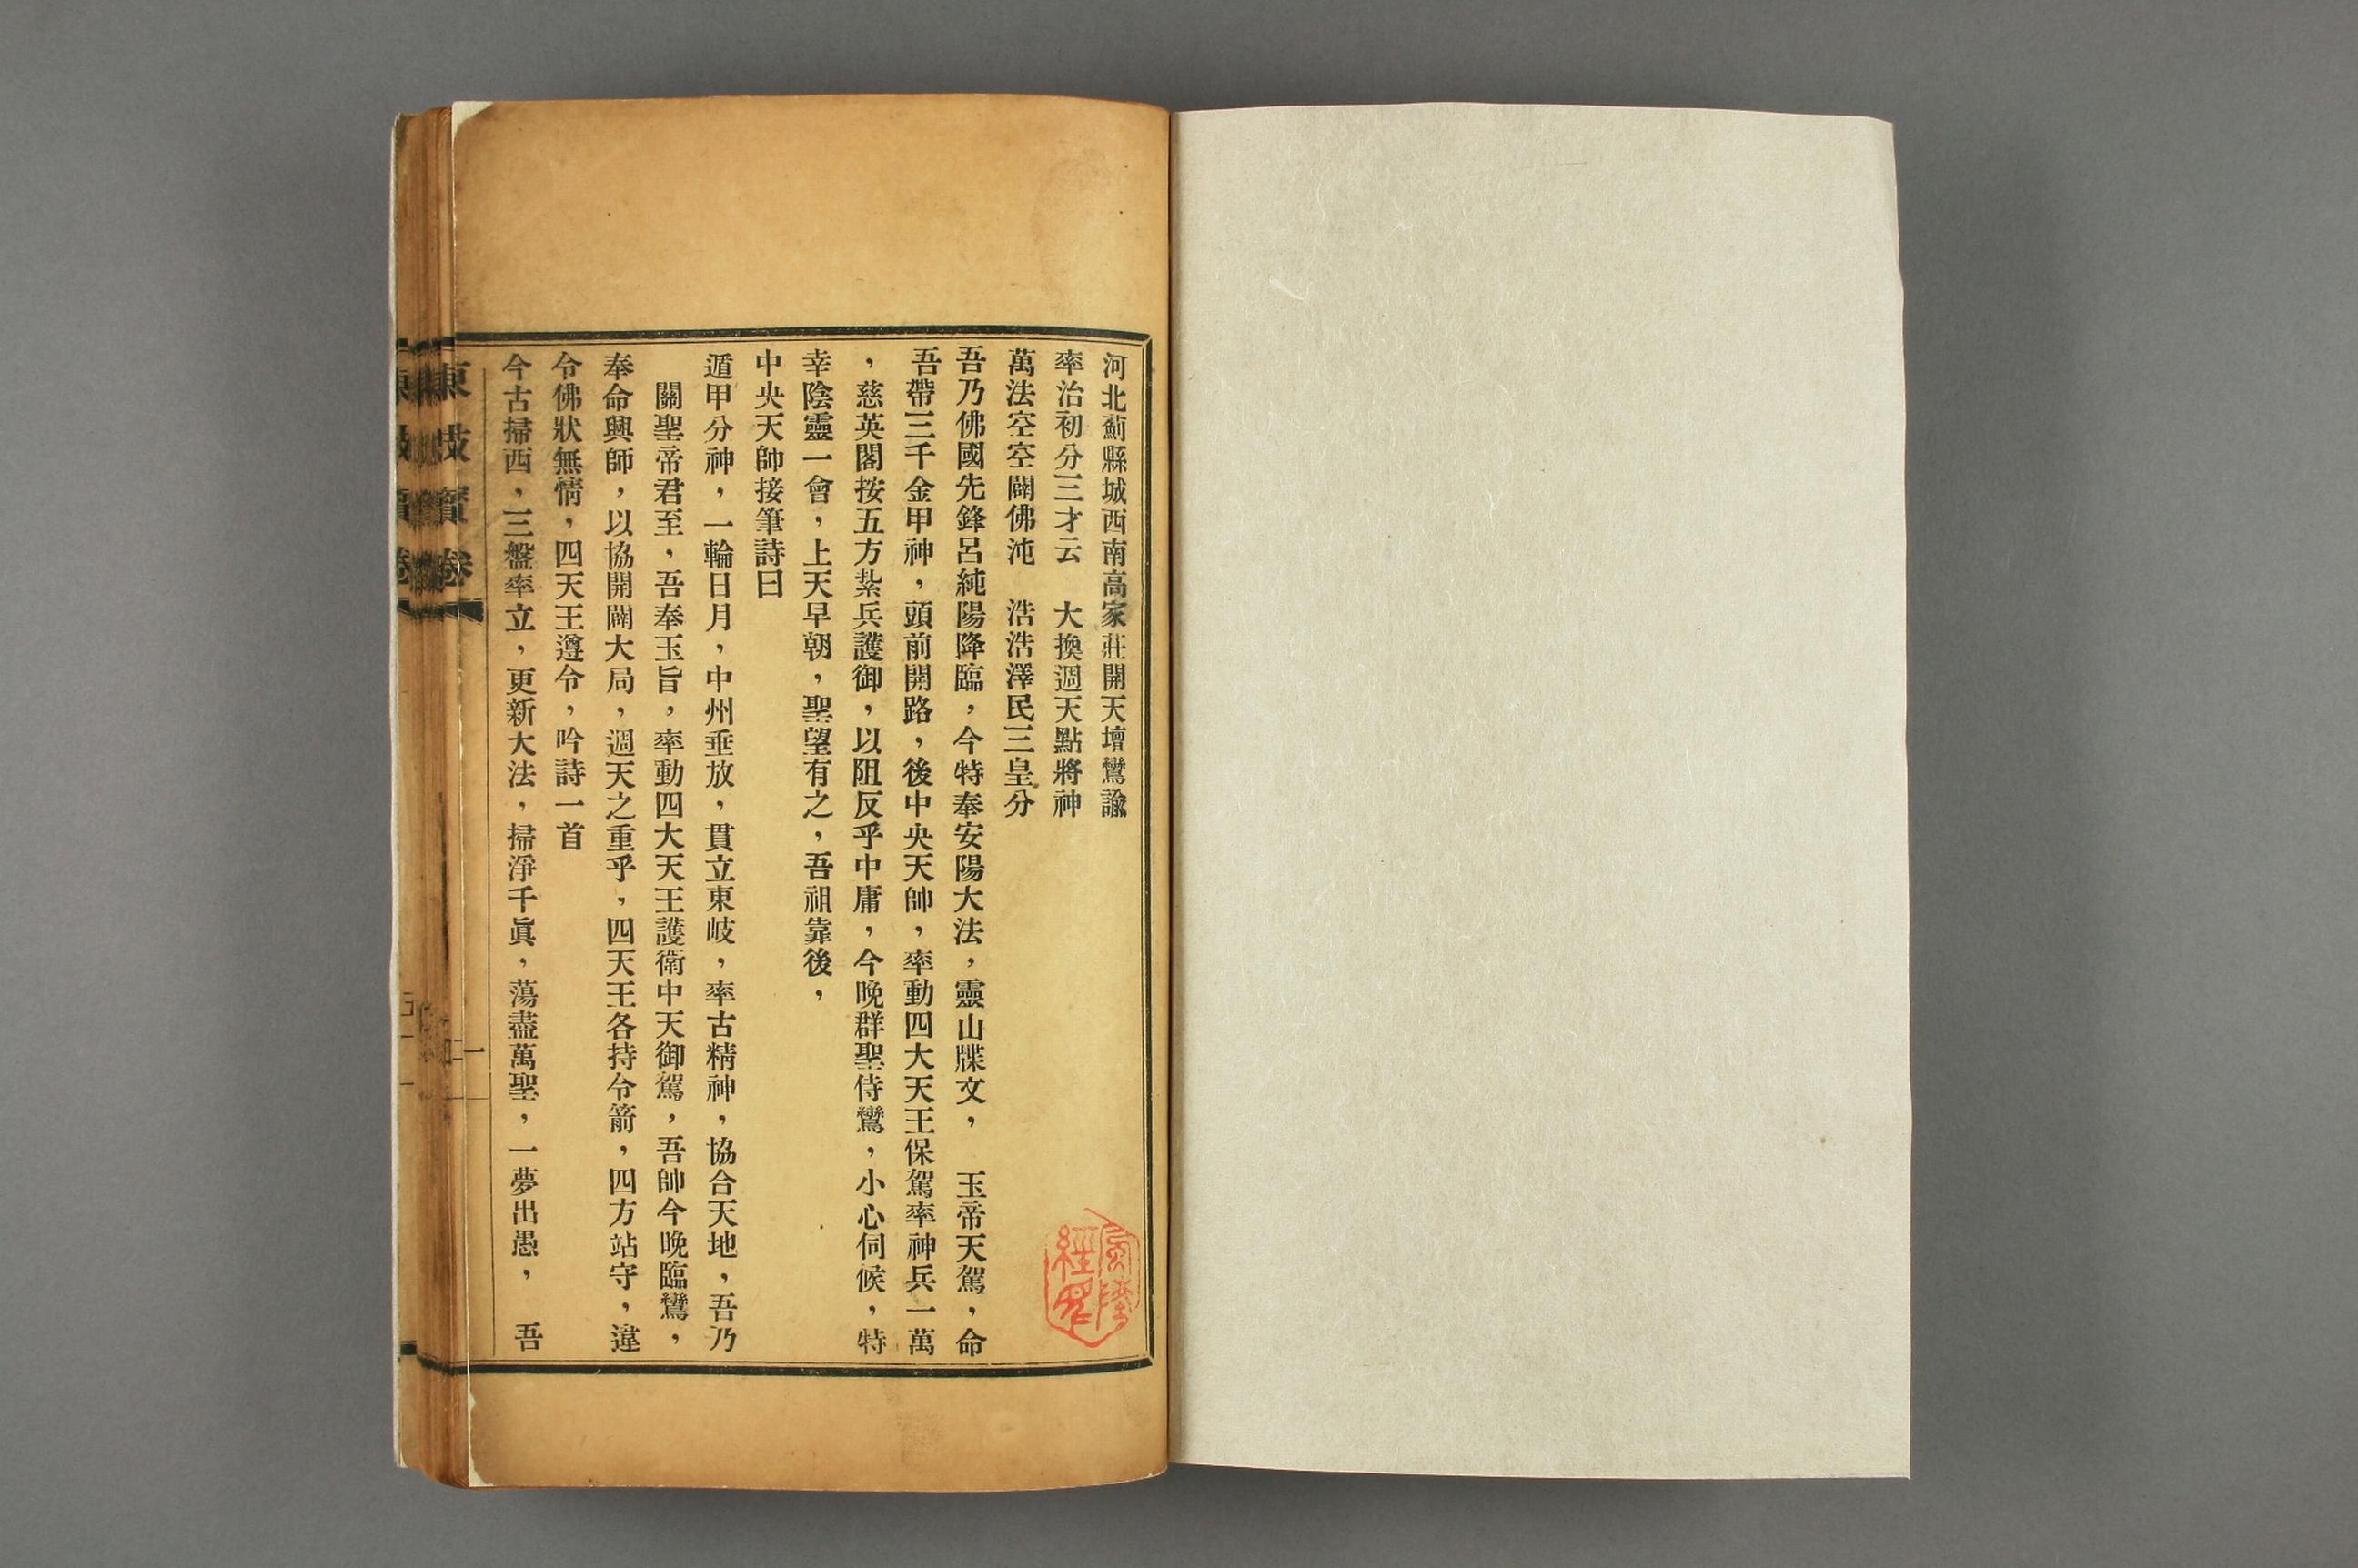 河北薊縣城西南高家莊開天壇鸞諭
率治初分三才云　大換週天點將神
萬法空空闢佛沌　浩浩澤民三皇分
吾乃佛國先鋒呂純陽降臨，今特奉安陽大法，靈山牒文，　玉帝天駕，命
吾帶三千金甲神，頭前開路，後中央天帥，率動四大天王保駕率神兵一萬
，慈英閣按五方紮兵護御，以阻反乎中庸，今晚群聖侍鸞，小心伺候，特
幸陰靈一會，上天早朝，聖望有之，吾祖靠後，
中央天帥接筆詩曰
遁甲分神，一輪日月，中州垂放，貫立東岐，率古精神，協合天地，吾乃
關聖帝君至，吾奉玉旨，率動四大天王護衛中天御駕，吾帥今晚臨鸞，
奉命興師，以協開闢大局，週天之重乎，四天王各持令箭，四方站守，違
令佛狀無情，四天王遵令，吟詩一首
今古掃西，三盤率立，更新大法，掃淨千眞，蕩盡萬聖，一夢出愚，　吾
東岐寶卷
一